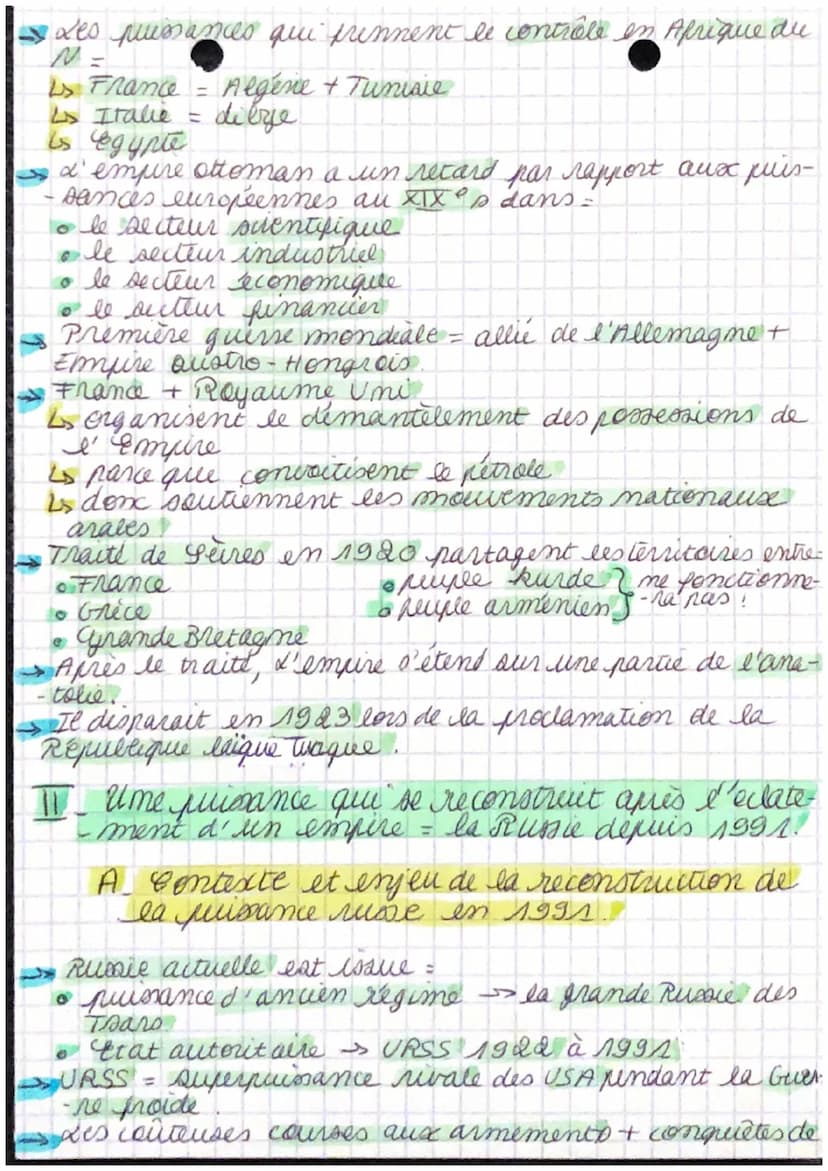 → Les puissances qui prennent le contrôle en Afrique du
N =
↳ France = Algérie + Tunisie
↳ Italie = Libye
↳ Egypte
→ L'empire ottoman a un retard par rapport aux puis-
-sances européennes au XIX° s dans =
• le secteur scientifique
• le secteur industriel
• le secteur économique
• le secteur financier
→ Première guerre mondiale = allié de l'Allemagne +
Empire austro-Hongrois.
→ France + Royaume Uni
↳ organisent le démantèlement des possessions de
l'Empire
↳ parce que convoitisent le pétrole
↳ donc soutiennent les mouvements nationaux
arabes !
→ Traité de Sèvres en 1920 partagent les territoires entre=
• France • peuple kurde } ne fonctionne-
• Grèce • peuple arménien } -ra pas !
• Grande Bretagne
→ Après le traité, l'empire s'étend sur une partie de l'ana-
-tolie.
→ Il disparait en 1923 lors de la proclamation de la
République laïque Turque.
II - Une puissance qui se reconstruit après l'éclate-
-ment d'un empire = la Russie depuis 1991.
A - Contexte et enjeu de la reconstruction de
la puissance russe en 1991.
→ Russie actuelle est issue =
• puissance d'ancien régime → la grande Russie des
Tsars
• Etat autoritaire → URSS 1922 à 1991.
→ URSS = superpuissance rivale des USA pendant la Guer-
-re froide.
→ Les coûteuses courses aux armements + conquêtes de